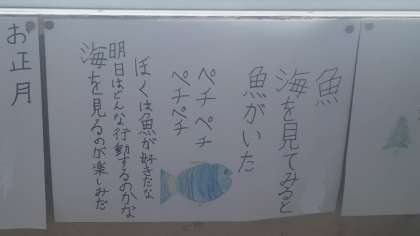 魚
海を見てみると
魚がいた
ペチ ペチ
ペチペチ
ぼくは魚が好きだな
明日はどんな行動するのかな
海を見るのが楽しみだ
お正月